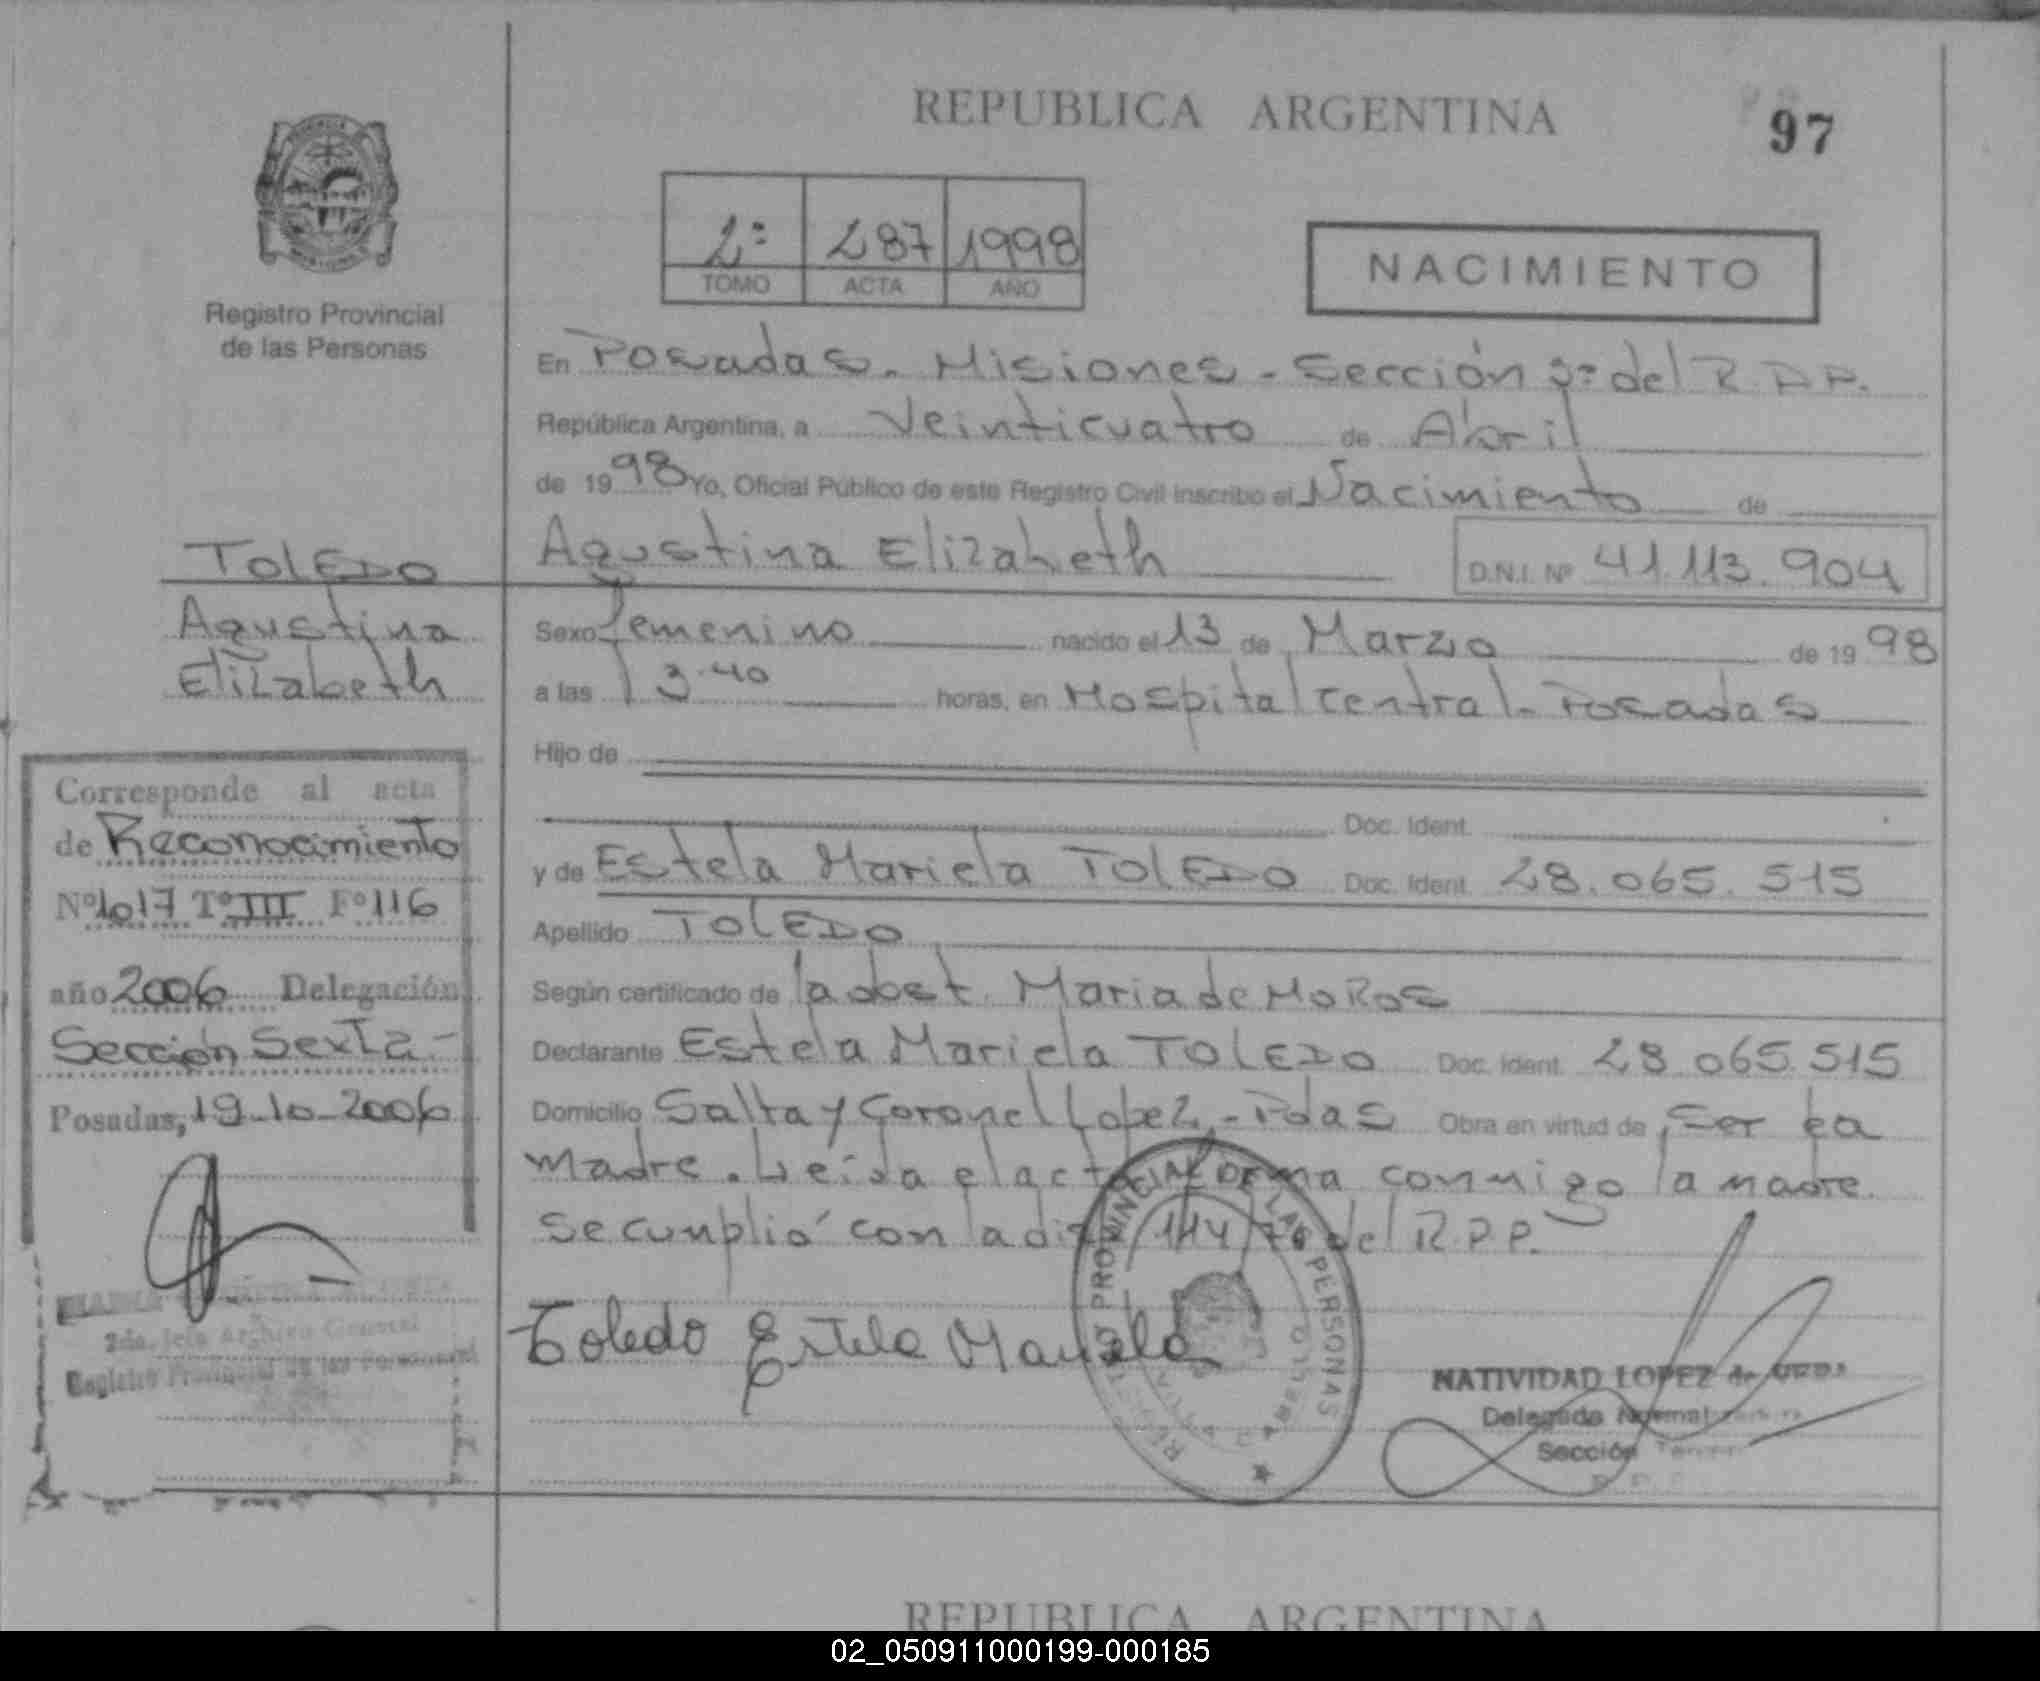 REPUBLICA ARGENTINA
97
2º 287 1998
TOMO ACTA AÑO
NACIMIENTO
Registro Provincial
de las Personas
En Posadas. Misiones - Sección 3º del R.P.P.
República Argentina, a Veinticuatro de Abril
de 1998 Yo, Oficial Público de este Registro Civil inscribo el Nacimiento de
Agustina Elizabeth D.N.I. Nº 41.113.904
TOLEDO
Agustina
Elizabeth
Sexo femenino nacido el 13 de Marzo de 1998
a las 13.40 horas, en Hospital Central - Posadas
Hijo de
Doc. Ident.
y de Estela Mariela TOLEDO Doc. Ident. 28.065.515
Apellido TOLEDO
Según certificado de María de
Declarante Estela Mariela TOLEDO Doc. Ident. 28.065.515
Domicilio Salta y Coronel Lopez - Pdas Obra en virtud de ser la
madre. Leída el acta conmigo la madre.
Se cumplió con la 114 del R.P.P.
Toledo Estela Mariela
REGISTRO PROVINCIAL DE LAS PERSONAS
NATIVIDAD LOPEZ de
Delegada Normal
Sección
Corresponde al acta
de Reconocimiento
Nº 1017 Tº III Fº 116
año 2006 Delegación
Sección Sexta -
Posadas, 19-10-2006
2do. Jefe Archivo General
Registro Provincial de las Personas
REPUBLICA ARGENTINA
02_050911000199-000185